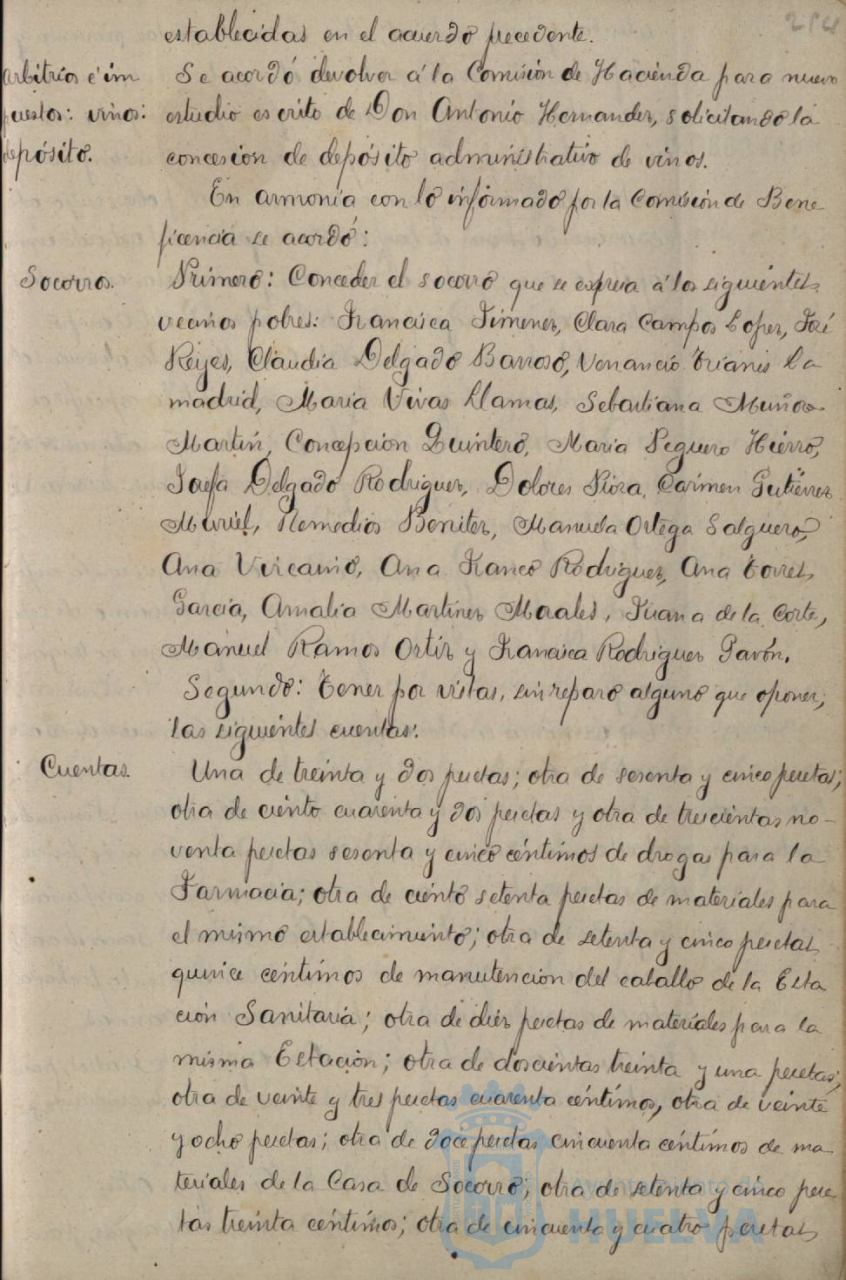 214
establecidas en el acuerdo precedente.
arbitrios é im
puestos: vinos:
depósito.
Se acordó devolver á la Comisión de Hacienda para nuevo
estudio escrito de Don Antonio Hernandez, solicitando la
concesion de depósito administrativo de vinos.
En armonía con lo informado por la Comisión de Bene
ficencia se acordó:
Socorros.
Primero: Conceder el socorro que se expresa á los siguientes
vecinos pobres: Francisca Jimenez, Clara Campos Lopez, José
Reyes, Claudia Delgado Barroso, Venancio Trianis La
madrid, Maria Vivas Llamas, Sebastiana Muñoz
Martín, Concepcion Quintero, Maria Peguero Hierro,
Josefa Delgado Rodriguez, Dolores Mora, Carmen Gutiérrez
Muriel, Remedios Benitez, Manuela Ortega Salguero,
Ana Vizcaino, Ana Franco Rodriguez, Ana Torres
García, Amalia Martínez Morales, Juana de la Corte,
Manuel Ramos Ortiz y Francisca Rodriguez Pavón.
Segundo: Tener por vistas, sin reparo alguno que oponer,
las siguientes cuentas:
Cuentas.
Una de treinta y dos pesetas; otra de sesenta y cinco pesetas;
otra de ciento cuarenta y dos pesetas y otra de trescientas no-
venta pesetas sesenta y cinco céntimos de drogas para la
Farmacia; otra de ciento setenta pesetas de materiales para
el mismo establecimiento; otra de setenta y cinco pesetas
quince céntimos de manutencion del caballo de la Esta
ción Sanitaria; otra de diez pesetas de materiales para la
misma Estación; otra de doscientas treinta y una pesetas;
otra de veinte y tres pesetas cuarenta céntimos, otra de veinte
y ocho pesetas; otra de doce pesetas cincuenta céntimos de ma
teriales de la Casa de Socorro; otra de setenta y cinco pese
tas treinta céntimos; otra de cincuenta y cuatro pesetas
Ayuntamiento de
HUELVA